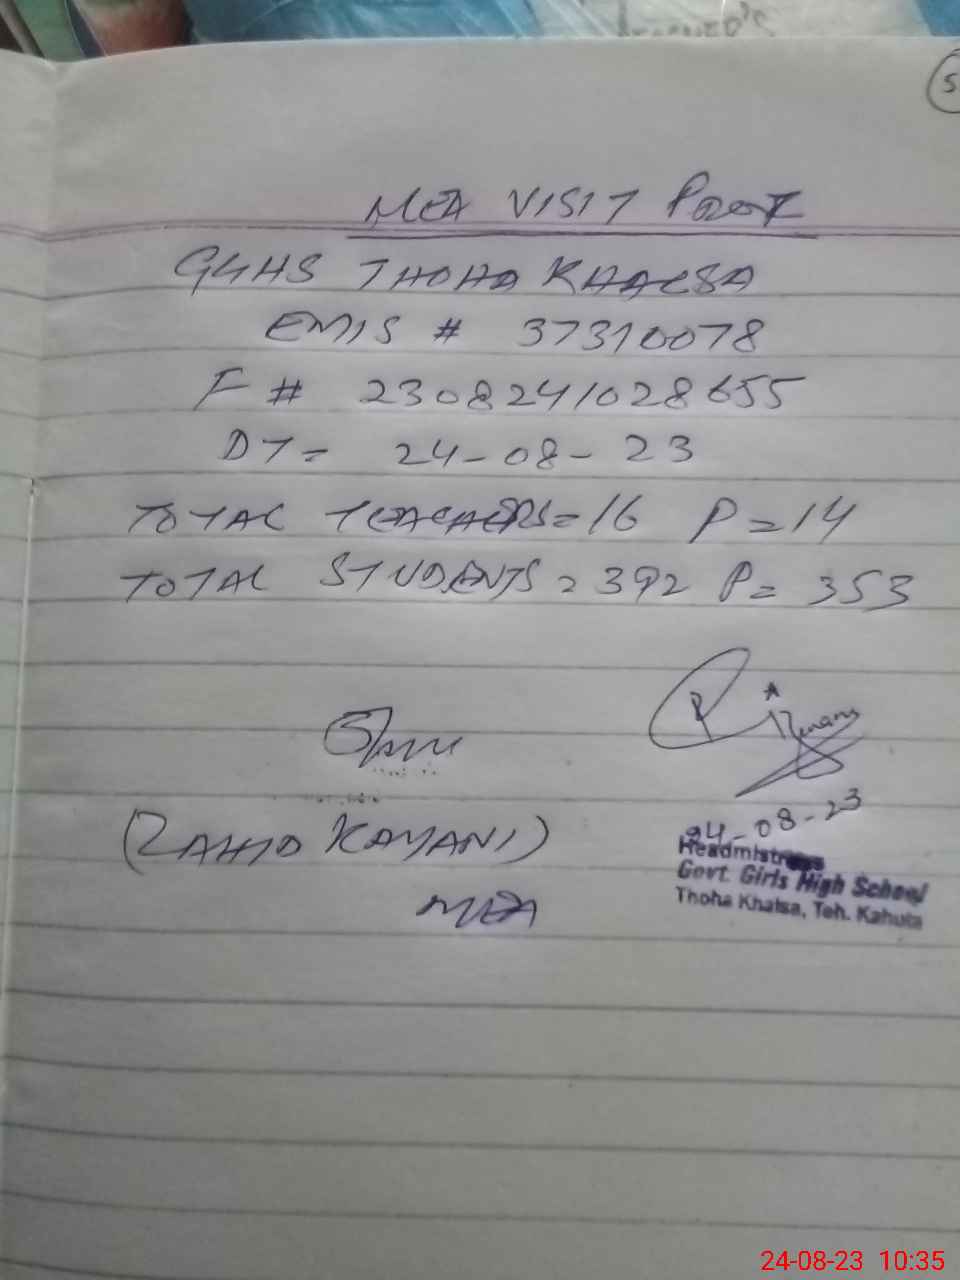 5
MEA VISIT PROOF
GGHS THOHA KHALSA
EMIS # 37310078
F# 2308241028655
DT= 24-08-23
TOTAL TEACHERS=16 P=14
TOTAL STUDENTS=392 P=353
24-08-23
(ZAHID KAYANI)
MEA
Headmistress
Govt. Girls High School
Thoha Khalsa, Teh. Kahuta
24-08-23 10:35